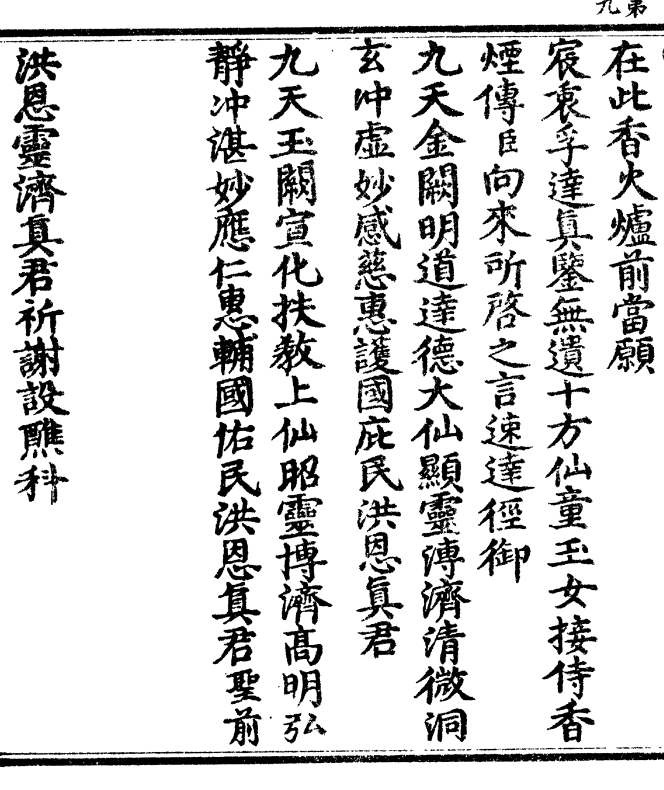 第九
在此香火爐前當願
宸衷孚達真鑒無遺十方仙童玉女接侍香
煙傳臣向來所啓之言速達徑御
九天金闕明道達德大仙顯靈溥濟清微洞
玄冲虛妙感慈惠護國庇民洪恩真君
九天玉闕宣化扶教上仙昭靈博濟高明弘
靜冲湛妙應仁惠輔國佑民洪恩真君聖前
洪恩靈濟真君祈謝設醮科